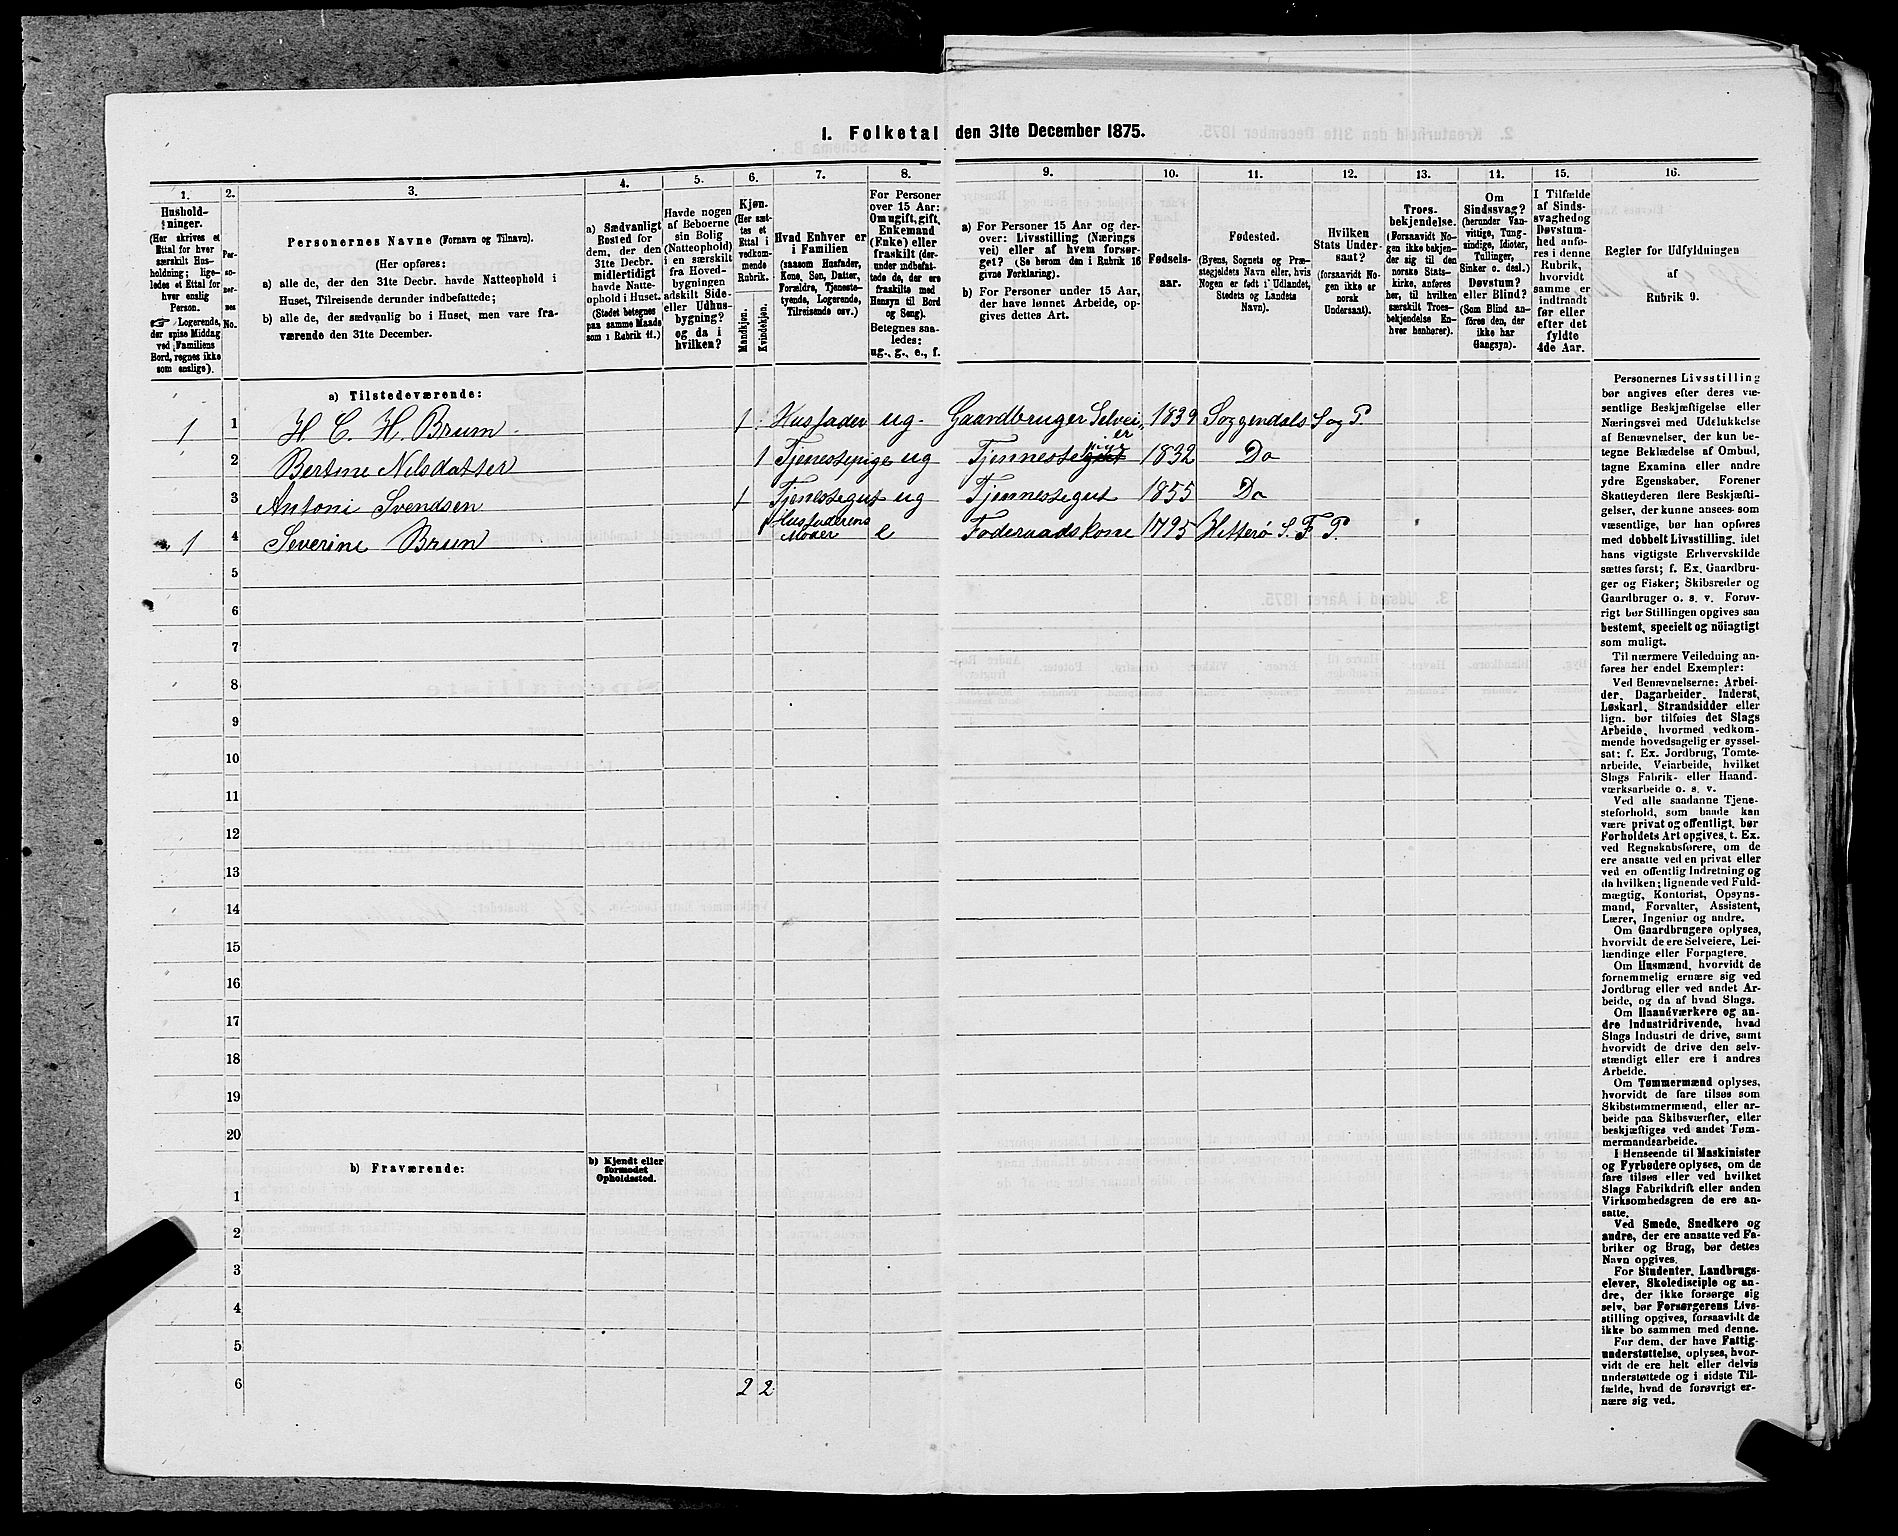 1. Folketal den 31te December 1875.
1. 2. 3. 4. 5. 6. 7. 8. 9. 10. 11. 12. 13. 14. 15. 16.
Hushold-
ninger.
(Her skrives et
Ettal for hver
særskilt Hus-
holdning; lige-
ledes et Ettal for
hver enslig
Person.
☞ Logerende,
der spise Middag
ved Familiens
Bord, regnes ikke
som enslige).
Per-
so-
ner-
nes
No.
Personernes Navne (Fornavn og Tilnavn).
(Her opføres:
a) alle de, der den 31te Decbr. havde Natteophold i
Huset, Tilreisende derunder indbefattede;
b) alle de, der sædvanlig bo i Huset, men vare fra-
værende den 31te December.
a) Sædvanligt
Bosted for
dem, der den
31te Decbr.
midlertidigt
havde Natte-
ophold i Huset.
(Stedet betegnes
paa samme Maade
som i Rubrik 11.)
Havde nogen
af Beboerne
sin Bolig
(Natteophold)
i en særskilt
fra Hoved-
bygningen
adskilt Side-
eller Udhus-
bygning?
og da i
hvilken?
Kjøn.
(Her sæt-
tes et
Ettal i
vedkom-
mende
Rubrik.
Mandkjøn.
Kvindekjøn.
Hvad Enhver er
i Familien
(saasom Husfader,
Kone, Søn, Datter,
Forældre, Tjeneste-
tyende, Logerende,
Tilreisende osv.)
For Personer
over 15 Aar:
Om ugift, gift,
Enkemand
(Enke) eller
fraskilt (der-
under indbefat-
tede de, der ere
fraskilte med
Hensyn til Bord
og Seng).
Betegnes saa-
ledes:
ug., g., e., f.
a) For Personer 15 Aar og der-
over: Livsstilling (Nærings
vei) eller af hvem forsør-
get? (Se herom den i Rubrik 16
givne Forklaring).
b) For Personer under 15 Aar,
der have lønnet Arbeide, op-
gives dettes Art.
Fødsels-
aar.
Fødested.
(Byens, Sognets og Præ-
stegjeldets Navn eller, hvis
Nogen er født i Udlandet,
Stedets og Landets
Navn).
Hvilken
Stats Under-
saat?
(forsaavidt No-
gen ikke er
norsk
Undersaat).
Troes-
bekjendelse.
(Forsaavidt No-
gen ikke bekjen-
der sig til den
norske Stats-
kirke, anføres
her, til hvilken
særskilt Troes-
bekjendelse En-
hver henhører).
Om
Sindssvag?
(herunder Van-
vittige, Tung-
sindige, Idioter,
Tullinger,
Sinker o. desl.)
Døvstum?
eller Blind?
(Som Blind an-
føres den, der
ikke har
Gangsyn).
I Tilfælde
af Sinds-
svaghed og
Døvstum-
hed anfø-
res i denne
Rubrik,
hvorvidt
samme er
indtraadt
før eller
efter det
fyldte
4de Aar.
Regler for Udfyldningen
af
Rubrik 9.
a) Tilstedeværende:
1 1 H. C. H. Brum 1 Husfader ug. Gaardbruger Selveier 1839 Soggendals Sog P.
2 Bertine Nilsdatter 1 Tjenestepige ug Tjennestepige 1832 Do
3 Antoni Svendsen 1 Tjenestegut ug Tjennestegut 1855 Do
1 4 Severine Brun 1 Husfaderens Moder e Foderaadskone 1795 Hitterø S. F. P.
5
6
7
8
9
10
11
12
13
14
15
16
17
18
19
20
b) Fraværende: b) Kjendt eller
formodet
Opholdssted.
1
2
3
4
5
6 2 2
Personernes Livsstilling
bør angives efter deres væ-
sentlige Beskjæftigelse eller
Næringsvei med Udelukkelse
af Benævnelser, der kun be-
tegne Beklædelse af Ombud,
tagne Examina eller andre
ydre Egenskaber. Forener
Skatteyderen flere Beskjæfti-
gelser, der kunne ansees som
væsentlige, bør han opføres
med dobbelt Livsstilling, idet
hans vigtigste Erhvervskilde
sættes først; f. Ex. Gaardbru-
ger og Fisker; Skibsreder og
Gaardbruger o. s. v. Forøv-
rigt bør Stillingen opgives saa
bestemt, specielt og nøiagtigt
som muligt.
Til nærmere Veiledning an-
føres her endel Exempler:
Ved Benævnelserne: Arbei-
der, Dagarbeider, Inderst,
Løskarl, Strandsidder eller
lign. bør tilføies det Slags
Arbeide, hvormed vedkom-
mende hovedsagelig er syssel-
sat: f. Ex. Jordbrug, Tomte-
arbeide, Veiarbeide, hvilket
Slags Fabrik- eller Haand-
værksarbeide o. s. v.
Ved alle saadanne Tjene-
steforhold, som baade kan
være privat og offentligt, bør
Forholdets Art opgives, t. Ex.
ved Regnskabsførere, om de
ere ansatte ved en privat eller
ved en offentlig Indretning og
da hvilken; lignende ved Fuld-
mægtig, Kontorist, Opsyns-
mand, Forvalter, Assistent,
Lærer, Ingeniør og andre.
Om Gaardbrugere oplyses,
hvorvidt de ere Selveiere, Lei-
lændinge eller Forpagtere.
Om Husmænd, hvorvidt de
fornemmelig ernære sig ved
Jordbrug eller ved andet Ar-
beide, og da af hvad Slags.
Om Haandværkere og an-
dre Industridrivende, hvad
Slags Industri de drive, samt
hvorvidt de drive den selv-
stændigt eller ere i andres
Arbeide.
Om Tømmermænd oplyses,
hvorvidt de fare tilsøs som
Skibstømmermænd, eller ar-
beide paa Skibsværfter, eller
beskjæftiges ved andet Tøm-
mermandsarbeide.
I Henseende til Maskinister
og Fyrbødere oplyses, om de
fare tilsøs eller ved hvilket
Slags Fabrikdrift eller anden
Virksomhedsgren de ere an-
satte.
Ved Smede, Snedkere og
andre, der ere ansatte ved Fa-
briker og Brug, bør dettes
Navn opgives.
For Studenter, Landbrugs-
elever, Skoledisciple og an-
dre, der ikke forsørge sig
selv, bør Forsørgerens Livs-
stilling opgives, forsaavidt de
ikke bo sammen med denne.
For dem, der have Fattig-
understøttelse, oplyses, hvor-
vidt de ere helt eller delvis
understøttede og i sidste Til-
fælde, hvad de forøvrigt er-
nære sig ved.